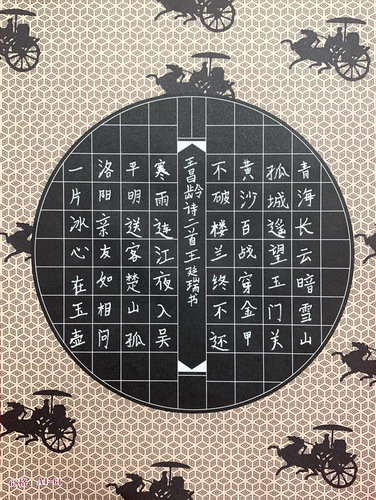 青海长云暗雪山
孤城遥望玉门关
黄沙百战穿金甲
不破楼兰终不还
王昌龄诗二首王延瑞书
寒雨连江夜入吴
平明送客楚山孤
洛阳亲友如相问
一片冰心在玉壶